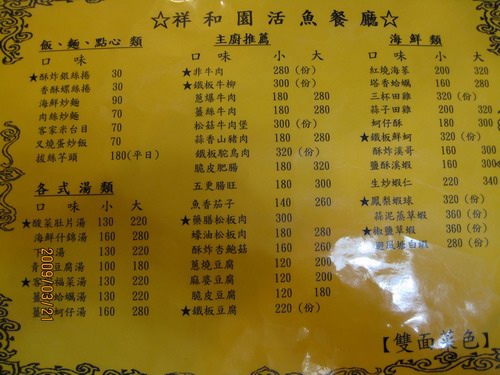 ☆祥和園活魚餐廳☆
飯、麵、點心 類
口 味
★酥炸銀絲捲 30
香酥螺絲捲 30
海鮮炒麵 90
肉絲炒麵 70
客家米台目 70
叉燒蛋炒飯 70
拔絲芋頭 180(平日)
各式湯類
口 味 小 大
★酸菜肚片湯 130 220
海鮮什錦湯 160 280
下 湯 130 220
青 豆腐湯 100 180
★客 福菜湯 130 220
薑 蛤蠣湯 130 220
薑 蚵仔湯 160 280
主廚推薦
口 味 小 大
★菲牛肉 280 (份)
★鐵板牛柳 300 (份)
蔥爆牛肉 180 280
薑絲牛肉 180 280
松菇牛肉堡 300 (份)
蒜香山豬肉 180 280
鐵板駝鳥肉 320 (份)
脆皮肥腸 180 320
五更腸旺 180 300
魚香茄子 140 260
★藥膳松板肉 300 (份)
蠔油松板肉 180 280
酥炸杏鮑菇 160 280
蔥燒豆腐 120 200
麻婆豆腐 120 200
脆皮豆腐 120 180
★鐵板豆腐 220 (份)
海鮮類
口 味 小 大
紅燒海蔘 200 320
塔香蛤蠣 160 280
三杯田雞 320 (份)
蒜子田雞 320 (份)
蚵仔酥 180 300
★鐵板鮮蚵 320 (份)
酥炸溪哥 160 280
鹽酥溪蝦 160 300
生炒蝦仁 180 320
★鳳梨蝦球 320 (份)
蒜泥蒸草蝦 360 (份)
★椒鹽草蝦 360 (份)
避風塘白蝦 280 (份)
【雙面菜色】
2009/03/21